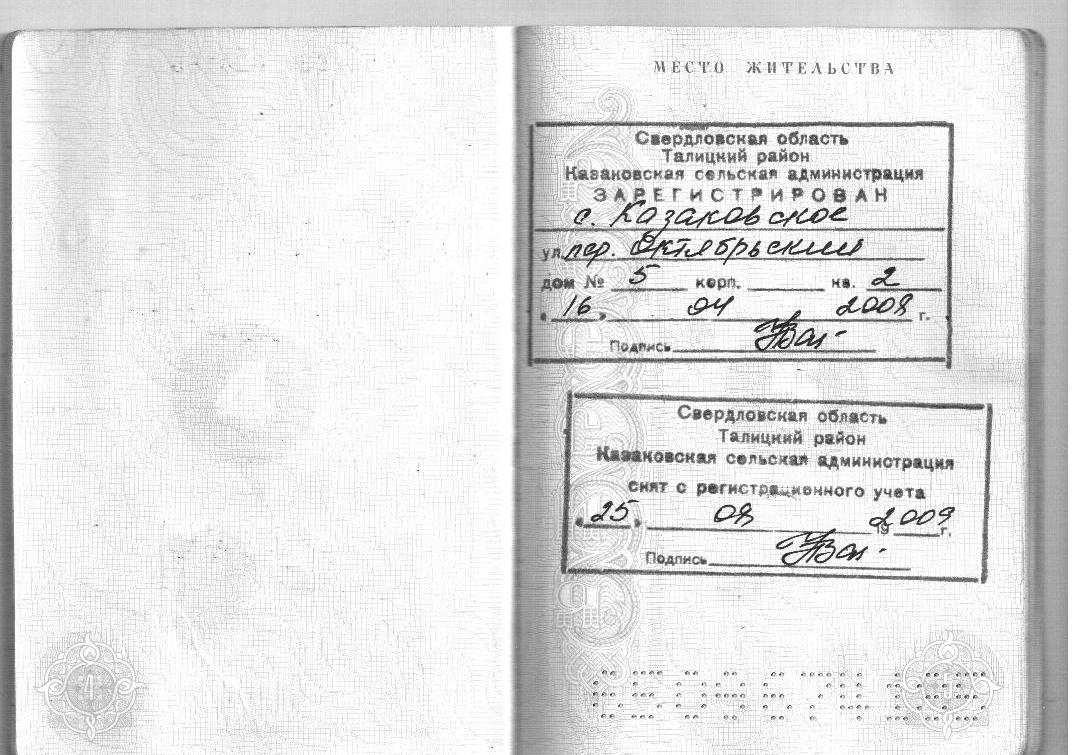 МЕСТО ЖИТЕЛЬСТВА
Свердловская область
Талицкий район
Казаковская сельская администрация
ЗАРЕГИСТРИРОВАН
с. Казаковское
ул. пер. Октябрьский
дом № 5 корп. кв. 2
« 16 » 04 2008 г.
Подпись
Свердловская область
Талицкий район
Казаковская сельская администрация
снят с регистрационного учета
« 25 » 08 2009 19 г.
Подпись
4
5